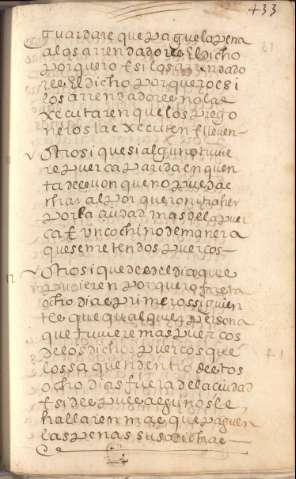 433
guardare que pague la pena
a los arrendadores El dicho
porquero E si los arrendado
res El dicho porquero E si
los arrendadores no las
xecutaren que los prego
neros las xecuten E lleven
otrosi que si alguno tuvie
re puerca parida en quen
ta de con que no pueda
criar al porquero ni traher
por la ciudad mas de la puer
ca E un cochino de manera
que se meten dos puercos
otrosi que desde el dia que
pusieren porquero fasta
ocho dias primeros siguien
tes que qualquier persona
que tuviere mas puercos
de los dichos puercos que
los saquen dentro destos
ocho dias fuera de la ciudad
E si despues algunos le
hallaren mas que paguen
las penas susodichas